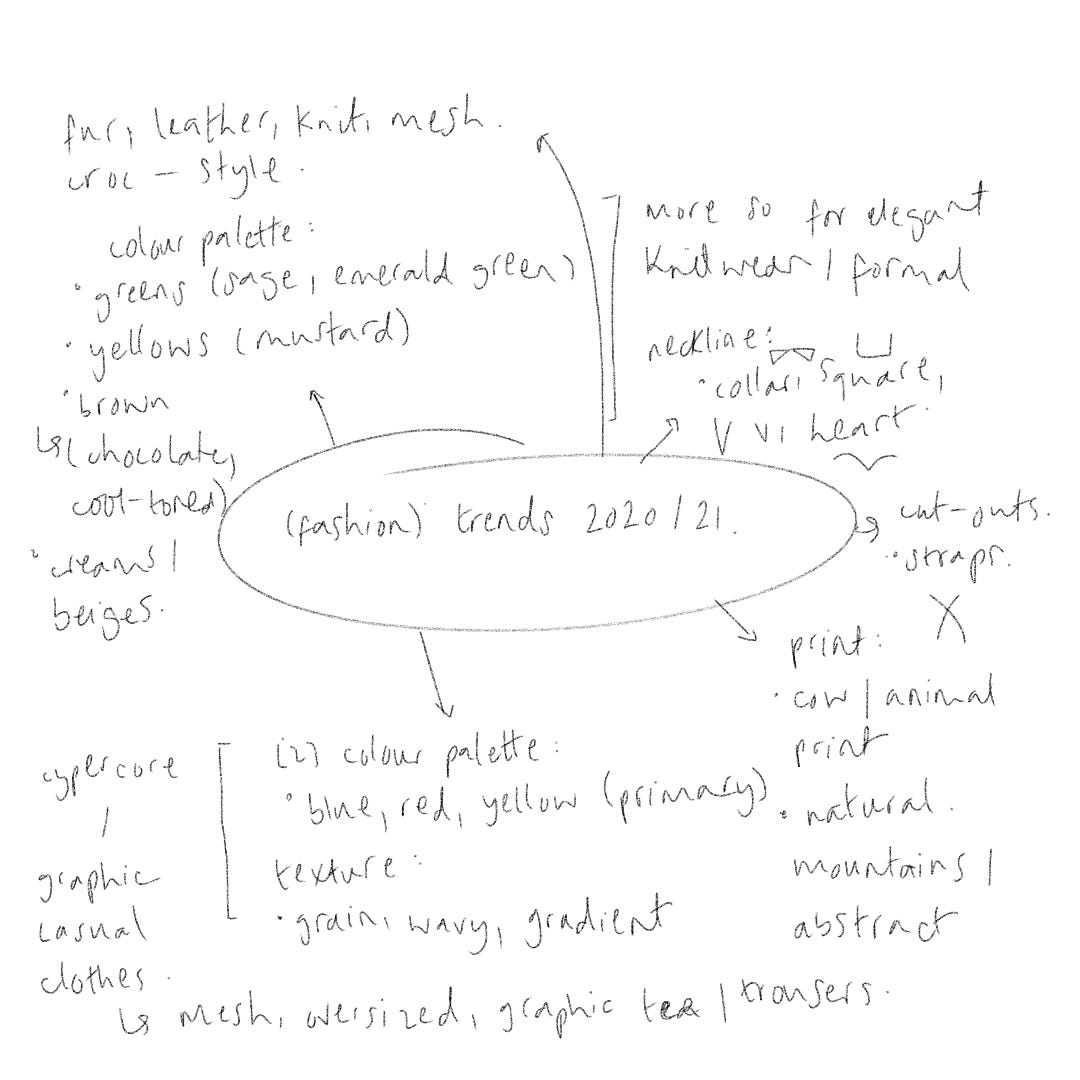 fur, leather, knit, mesh.
croc - style.
colour palette:
• greens (sage, emerald green)
• yellows (mustard)
• brown
↳ (chocolate,
cool-toned)
• creams /
beiges.
more so for elegant
knitwear / formal
neckline:
• collar, square,
V V, heart.
(fashion) trends 2020/21.
cut-outs.
• straps.
X
print:
• cow / animal
print
• natural.
mountains /
abstract
(2) colour palette:
• blue, red, yellow (primary)
texture:
• grain, wavy, gradient
cypercore
/
graphic
casual
clothes.
↳ mesh, oversized, graphic tea / trousers.